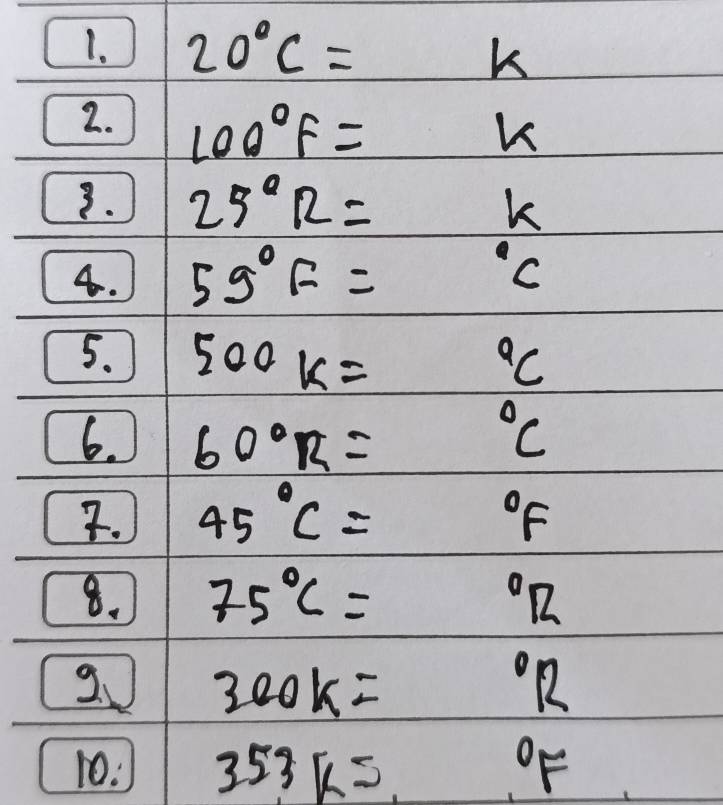 1. 20°C = K
2. 100°F = K
3. 25°R = K
4. 59°F = °C
5. 500 K = °C
6. 60°R = °C
7. 45°C = °F
8. 75°C = °R
9. 300K = °R
10. 353 K = °F